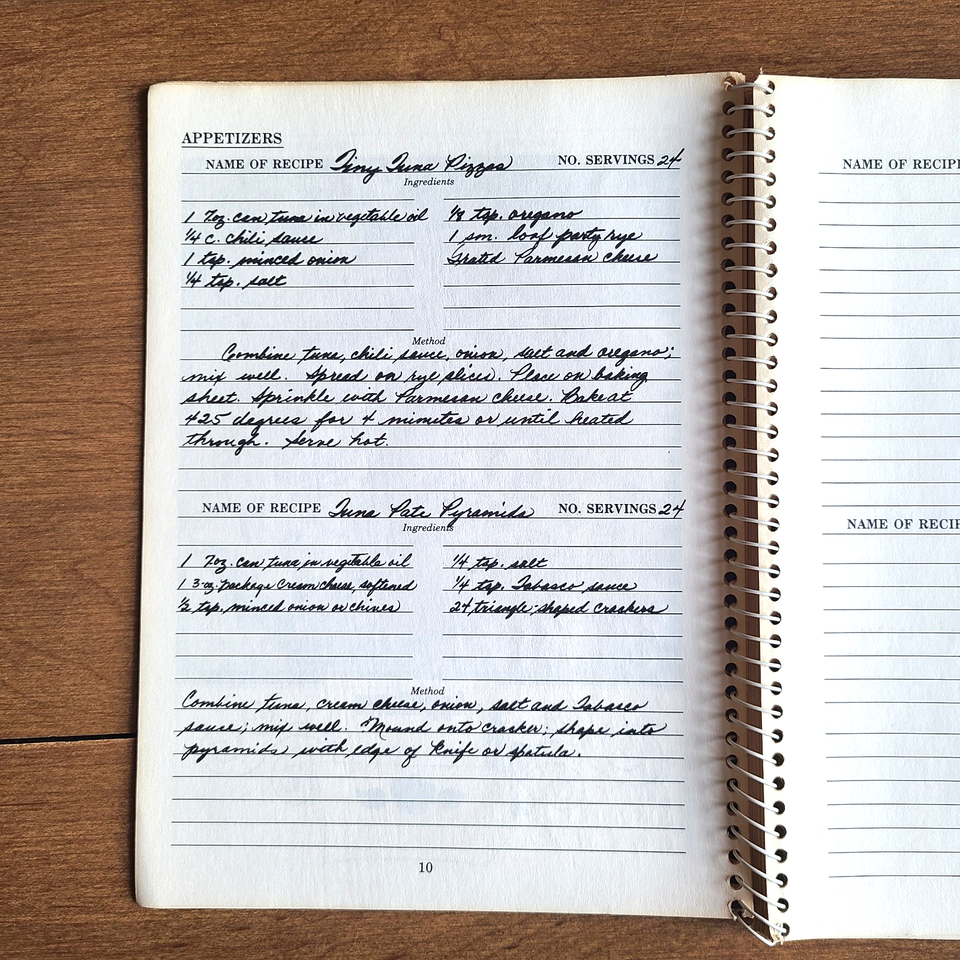 APPETIZERS
NAME OF RECIPE Tiny Tuna Pizzas NO. SERVINGS 24
Ingredients
1 7oz. can tuna in vegetable oil
1/4 c. chili sauce
1 tsp. minced onion
1/4 tsp. salt
1/8 tsp. oregano
1 sm. loaf party rye
Grated Parmesan cheese
Method
Combine tuna, chili sauce, onion, salt and oregano;
mix well. Spread on rye slices. Place on baking
sheet. Sprinkle with Parmesan cheese. Bake at
425 degrees for 4 minutes or until heated
through. Serve hot.
NAME OF RECIPE Tuna Pate Pyramids NO. SERVINGS 24
Ingredients
1 7oz. can tuna in vegetable oil
1 3-oz. package cream cheese, softened
1/2 tsp. minced onion or chives
1/4 tsp. salt
1/4 tsp. Tabasco sauce
24 triangle-shaped crackers
Method
Combine tuna, cream cheese, onion, salt and Tabasco
sauce; mix well. Mound onto cracker; shape into
pyramids with edge of knife or spatula.
10
NAME OF RECIPE
NAME OF RECIPE